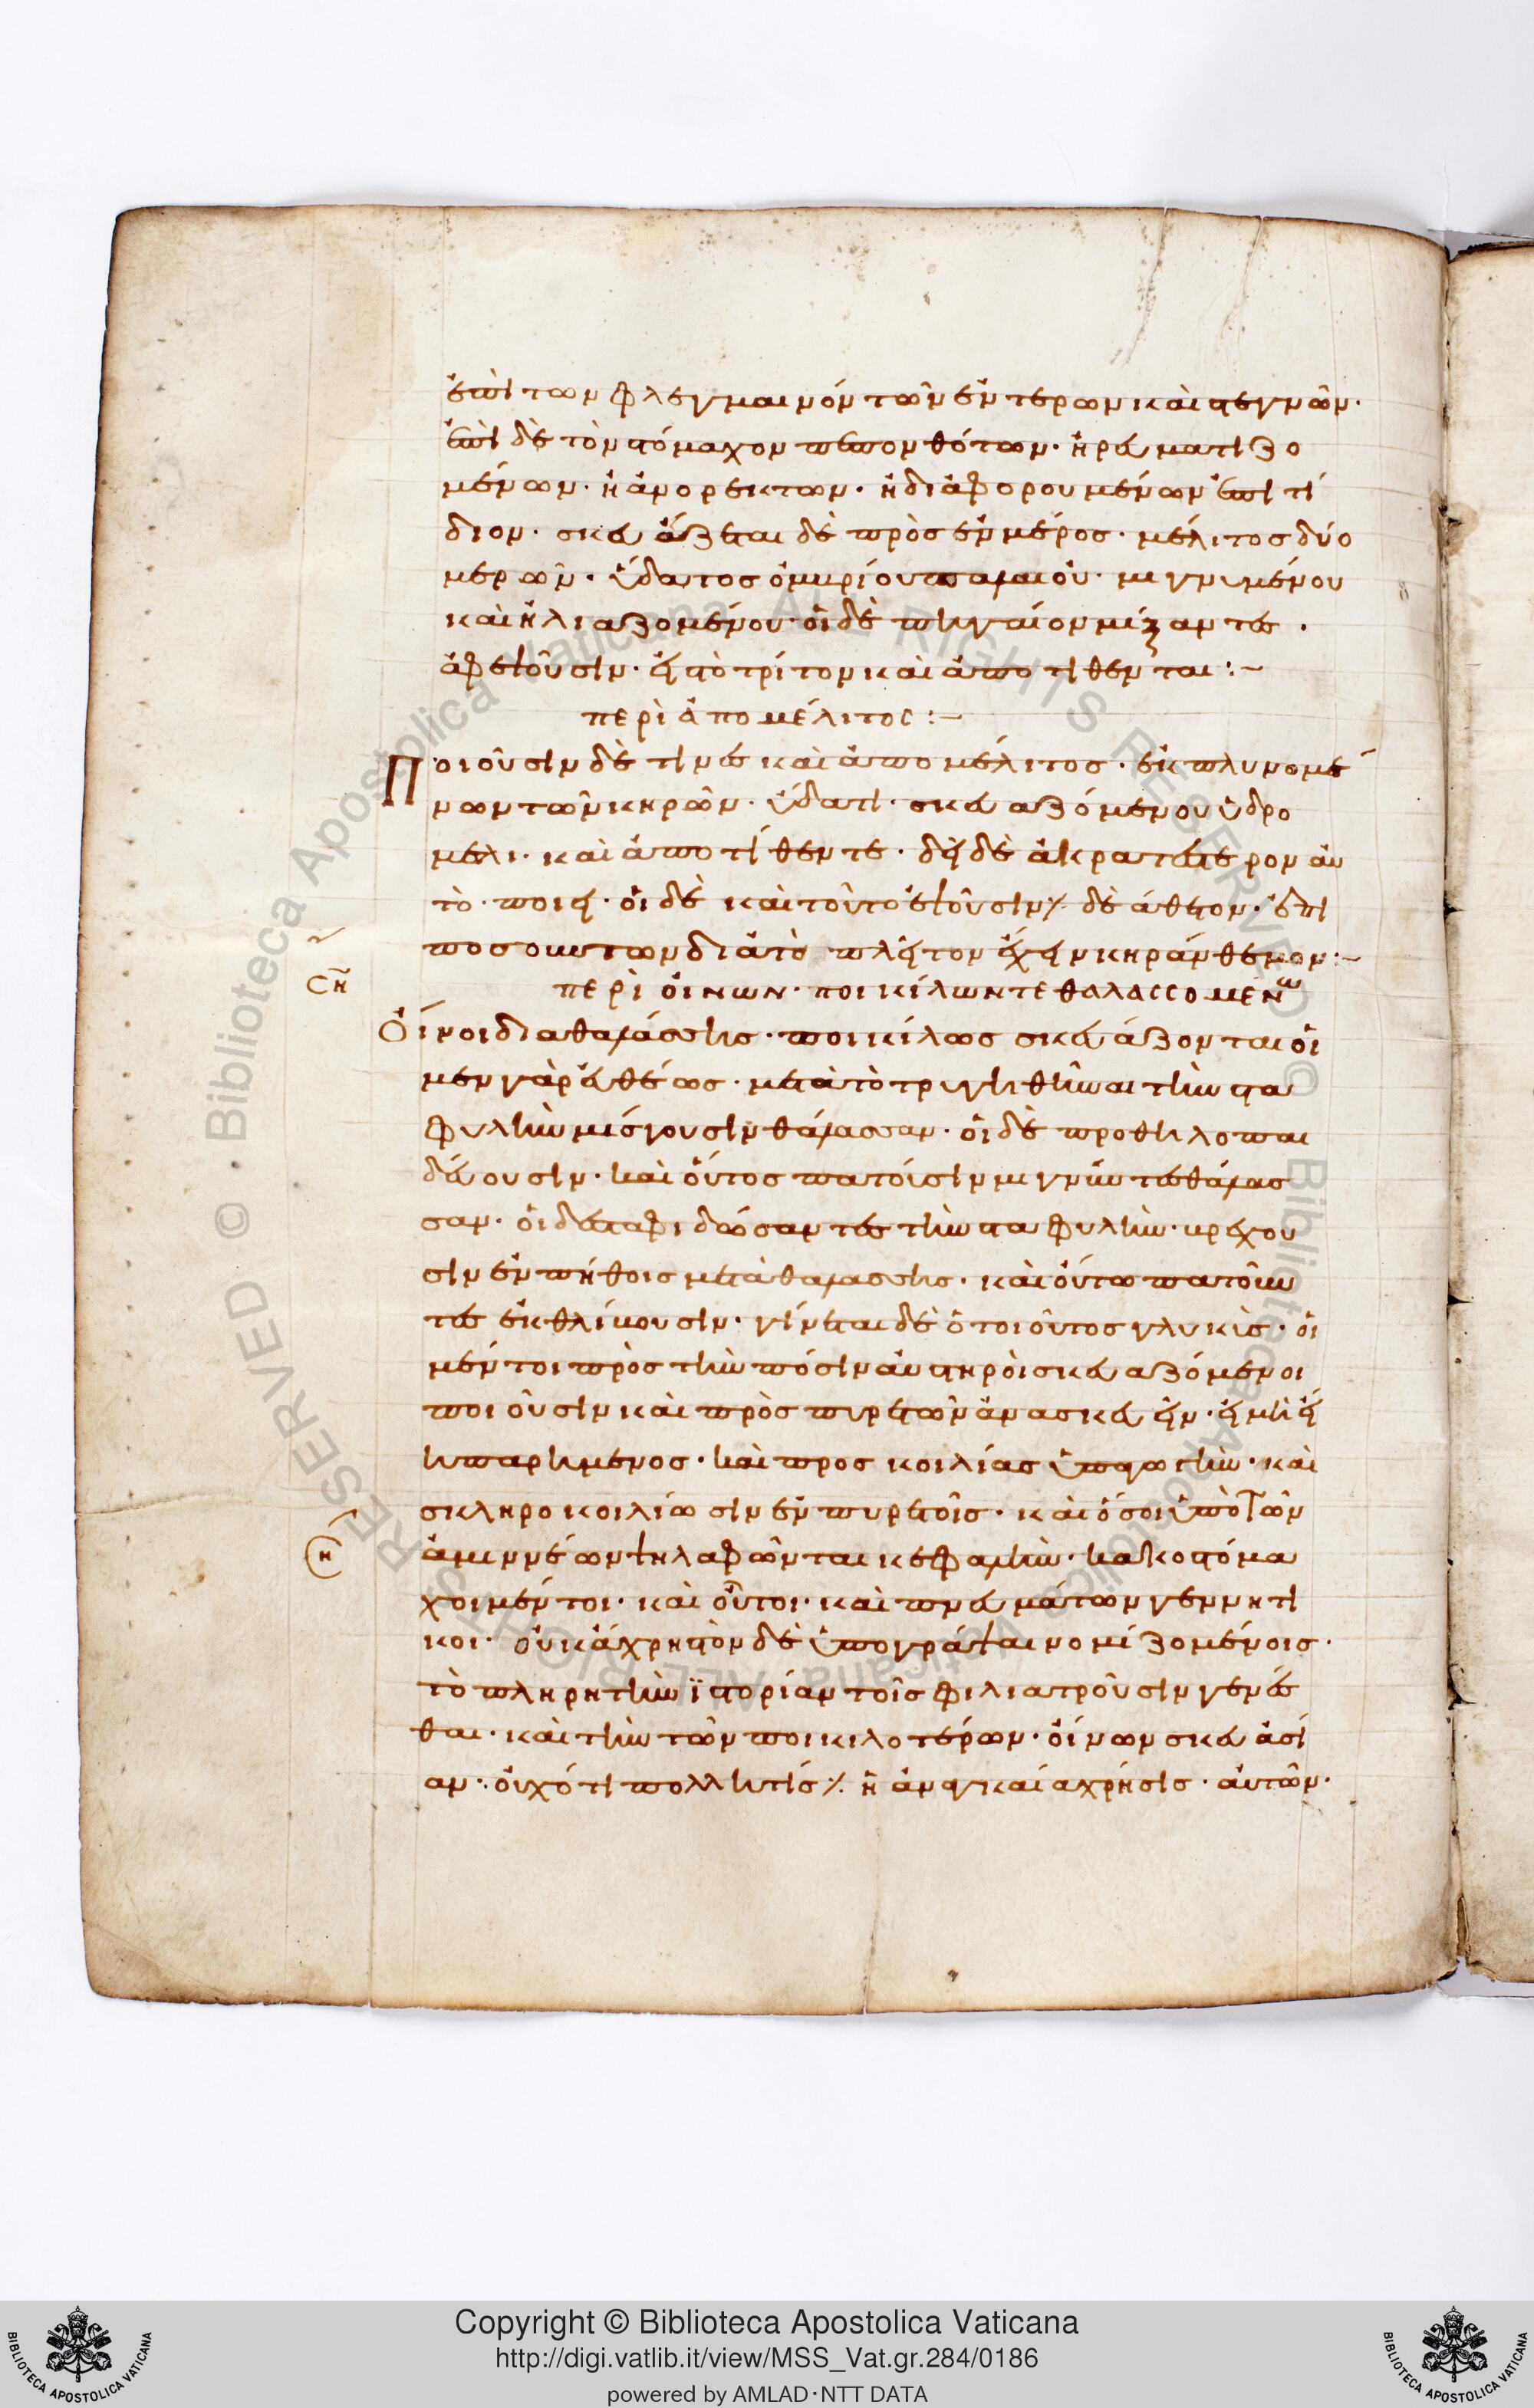 ἐπὶ τῶν φλεγμαινόντων ἐντέρων καὶ στεγνῶν·
ἐπὶ δὲ τὸν στόμαχον πεπονθότων· ἢ ῥευματιζο
μένων· ἢ ἀνορέκτων· ἢ διαφορουμένων ἐπὶ τί
διον· σκευάζεται δὲ πρὸς ἓν μέρος· μέλιτος δύο
μερῶν· ὕδατος ὀμβρίου παλαιοῦ· μιγνυμένου
καὶ ἡλιαζομένου· οἱ δὲ πηγαῖον μίξαντες·
ἀφεψοῦσιν· εἰς τὸ τρίτον καὶ ἀποτίθενται :~
περὶ ἀπομέλιτος :~
Ποιοῦσιν δὲ τινὲς καὶ ἀπομέλιτος· ἐκπλυνομέ
νων τῶν κηρῶν· ὕδατι· σκευαζόμενον ὑδρο
μέλι· καὶ ἀποτίθεντες· δεῖ δὲ ἀκρατέστερον αυ
τὸ ποιεῖν· οἱ δὲ καὶ τοῦτο ἑψοῦσιν· ⁒ δὲ ἄθετον· ἐπὶ
νοσούντων διὰ τὸ πλεῖστον ἔχειν κηράνθεμον :~
περὶ οἴνων· ποικίλων τε θαλασσομένω
Οἴνοι διαθαλάσσης· ποικίλως σκευάζονται οἱ
μὲν γὰρ εὐθέως· μετὰ τὸ τρυγηθῆναι τὴν στα
φυλὴν μίσγουσιν θάλασσαν· οἱ δὲ προθηλοπαι
δεύουσιν· καὶ οὕτος πατοῦσιν μιγνύντες θάλασ
σαν· οἱ δὲ σταφιδώσαντες τὴν σταφυλὴν· βρέχου
σιν ἐν πήθοις μετὰ θαλασσης· καὶ οὕτω πατοῦν
τες ἐκθλίβουσιν· γίνεται δὲ ὁ τοιοῦτος γλυκὺς· οἱ
μέντοι πρὸς τὴν πόσιν αὐστηρὸι σκευαζόμενοι
ποιοῦσιν καὶ πρὸς πυρετῶν ἀνασκευὴν· εἰ μὴ εἴη
ηπαρημένος· καὶ προς κοιλίας ὑπαγωγὴν· καὶ
σκληροκοιλίω σιν ἐν πυρετοῖς· καὶ ὅσοι ὑπὸ τῶν
ἀμιννέων ψηλαφῶνται κεφαλὴν· κακοστόμα
χοι μέντοι· καὶ οὗτοι· καὶ πνευμάτων γεννητι
κοι· οὐκ ἄχρηστον δὲ ὑπογράψαι νομίζομένοις·
τὸ πληρη τὴν ἱστορίαν τοῖς φιλιατροῦσιν γενέσ
θαι· καὶ τὴν τῶν ποικιλοτέρων· οἴνων σκευασί
αν· οὐχ ὅτι πολλή τίς ⁒ ἢ ἀναγκαία χρήσις· αὐτῶν·
σῆ
η
Copyright © Biblioteca Apostolica Vaticana
http://digi.vatlib.it/view/MSS_Vat.gr.284/0186
powered by AMLAD·NTT DATA
BIBLIOTECA APOSTOLICA VATICANA
BIBLIOTECA APOSTOLICA VATICANA